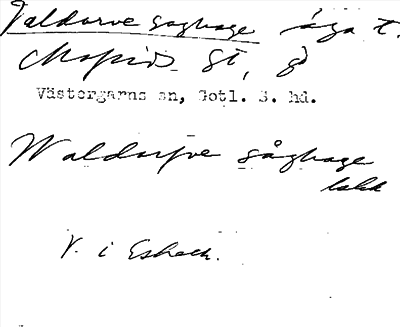 Valdarve saghage äga t.
Mafrids St, gd
Västergarns sn, Gotl. S. hd.
Waldarfve såghage
V. i Eskeck.